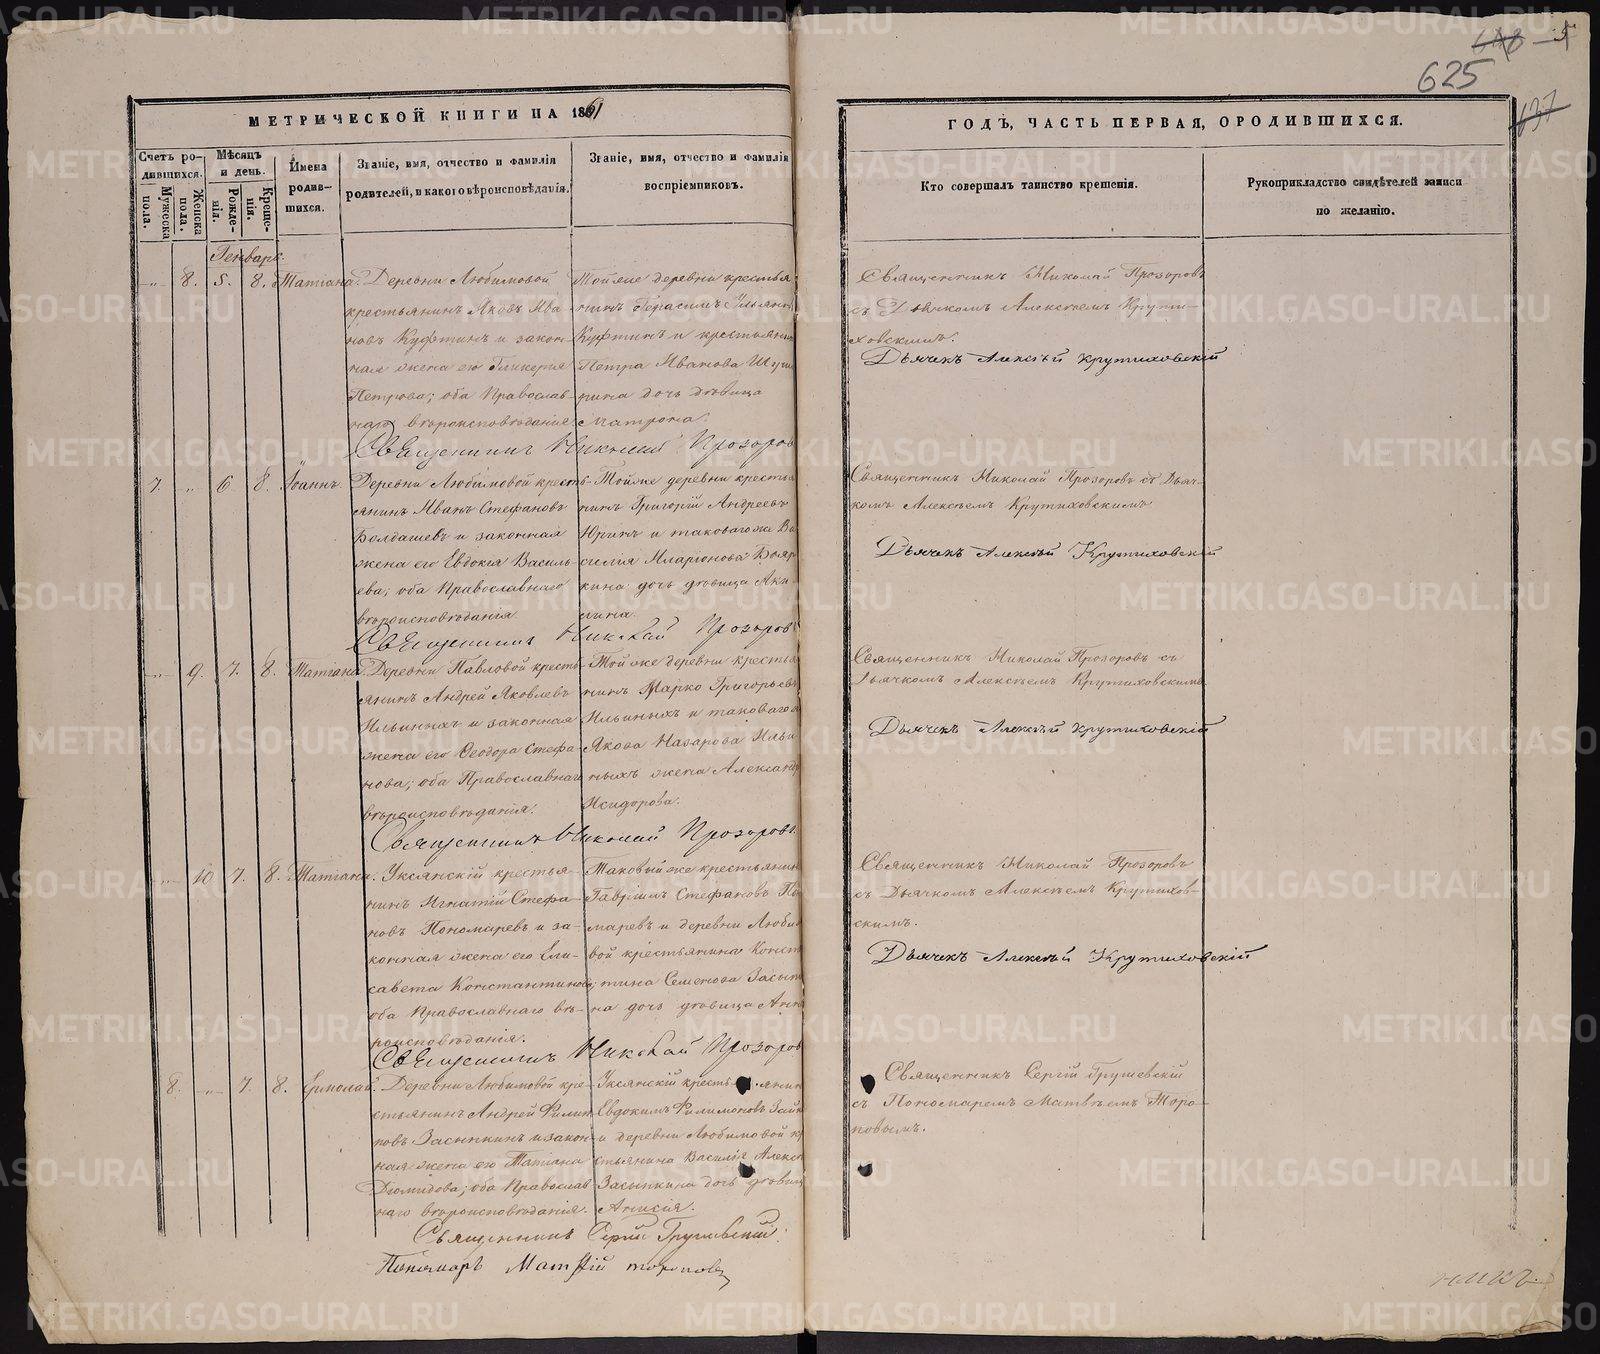 625
МЕТРИЧЕСКОЙ КНИГИ НА 1861
ГОДЪ, ЧАСТЬ ПЕРВАЯ, О РОДИВШИХСЯ.
Счетъ ро-
дившихся.
Мужеска
пола.
Женска
пола.
Мѣсяцъ
и день.
Рожде-
нія.
Креще-
нія.
Имена
родив-
шихся.
Званіе, имя, отчество и фамилія
родителей, и какого вѣроисповѣданія.
Званіе, имя, отчество и фамилія
воспріемниковъ.
Кто совершалъ таинство крещенія.
Рукоприкладство свидѣтелей записи
по желанію.
Генварь.
8. 5. 8. Татіана.
Деревни Любимовой
крестьянинъ Яковъ Ива-
новъ Куфтинъ и закон-
ная жена его Гликерія
Петрова; оба Православ-
наго вѣроисповѣданія.
Тойже деревни крестья
нинъ Герасимъ Ильинъ
Куфтинъ и крестьянина
Петра Иванова
рина дочь дѣвица
Матрона.
Священникъ Николай Прозоровъ
съ Дьячкомъ Алексѣемъ Крути-
ховскимъ.
Дьячекъ Алексѣй Крутиховскій
Священникъ Николай Прозоровъ
7. 6 8. Іоаннъ.
Деревни Любимовой кресть-
янинъ Иванъ Стефановъ
Болдашевъ и законная
жена его Евдокія Василь-
ева; оба Православнаго
вѣроисповѣданія
Тойже деревни крестья
нинъ Григорій Андреевъ
Юринъ и таковагоже Ва
силія Иларіонова Бояр
кина дочь дѣвица Аки
лина.
Священникъ Николай Прозоровъ съ Дьяч-
комъ Алексѣемъ Крутиховскимъ
Дьячекъ Алексѣй Крутиховскій
Священникъ Николай Прозоровъ
9. 7. 8. Татіана.
Деревни Павловой кресть-
янинъ Андрей Яковлевъ
Ильиныхъ и законная
жена его Ѳеодора Стефа-
нова; оба Православнаго
вѣроисповѣданія.
Тойже деревни крестья
нинъ Марко Григорьевъ
Ильиныхъ и таковаго
Якова Назарова Ильи
ныхъ жена Александра
Исидорова.
Священникъ Николай Прозоровъ съ
Дьячкомъ Алексѣемъ Крутиховскимъ
Дьячекъ Алексѣй Крутиховскій
Священникъ Николай Прозоровъ
10 7. 8. Татіана.
Уксянскій крестья-
нинъ Игнатій Стефа-
новъ Пономаревъ и за-
конная жена его Ели-
савета Константинова;
оба Православнаго вѣ-
роисповѣданія.
Таковыйже крестьянинъ
Гавріилъ Стефановъ По
маревъ и деревни Люби
вой крестьянина Конст
тина Семенова Засып
на дочь дѣвица Анна
Священникъ Николай Прозоровъ
съ Дьячкомъ Алексѣемъ Крутихов-
скимъ.
Дьячекъ Алексѣй Крутиховскій
Священникъ Николай Прозоровъ
8. 7. 8. Ермолай.
Деревни Любимовой кре-
стьянинъ Андрей Филип
повъ Засыпкинъ и закон-
ная жена его Татіана
Діомидова; оба Православ-
наго вѣроисповѣданія.
Уксянскій крестьянинъ
Евдокимъ Филимоновъ
и деревни Любимовой кр
стьянина Василія Алекс
Засыпкина дочь дѣвиц
Анисія.
Священникъ Сергій Грушевскій
съ Пономаремъ Матвѣемъ Торо-
повымъ.
Священникъ Сергій Грушевскій.
Пономарь Матѳій Тороповъ
METRIKI.GASO-URAL.RU